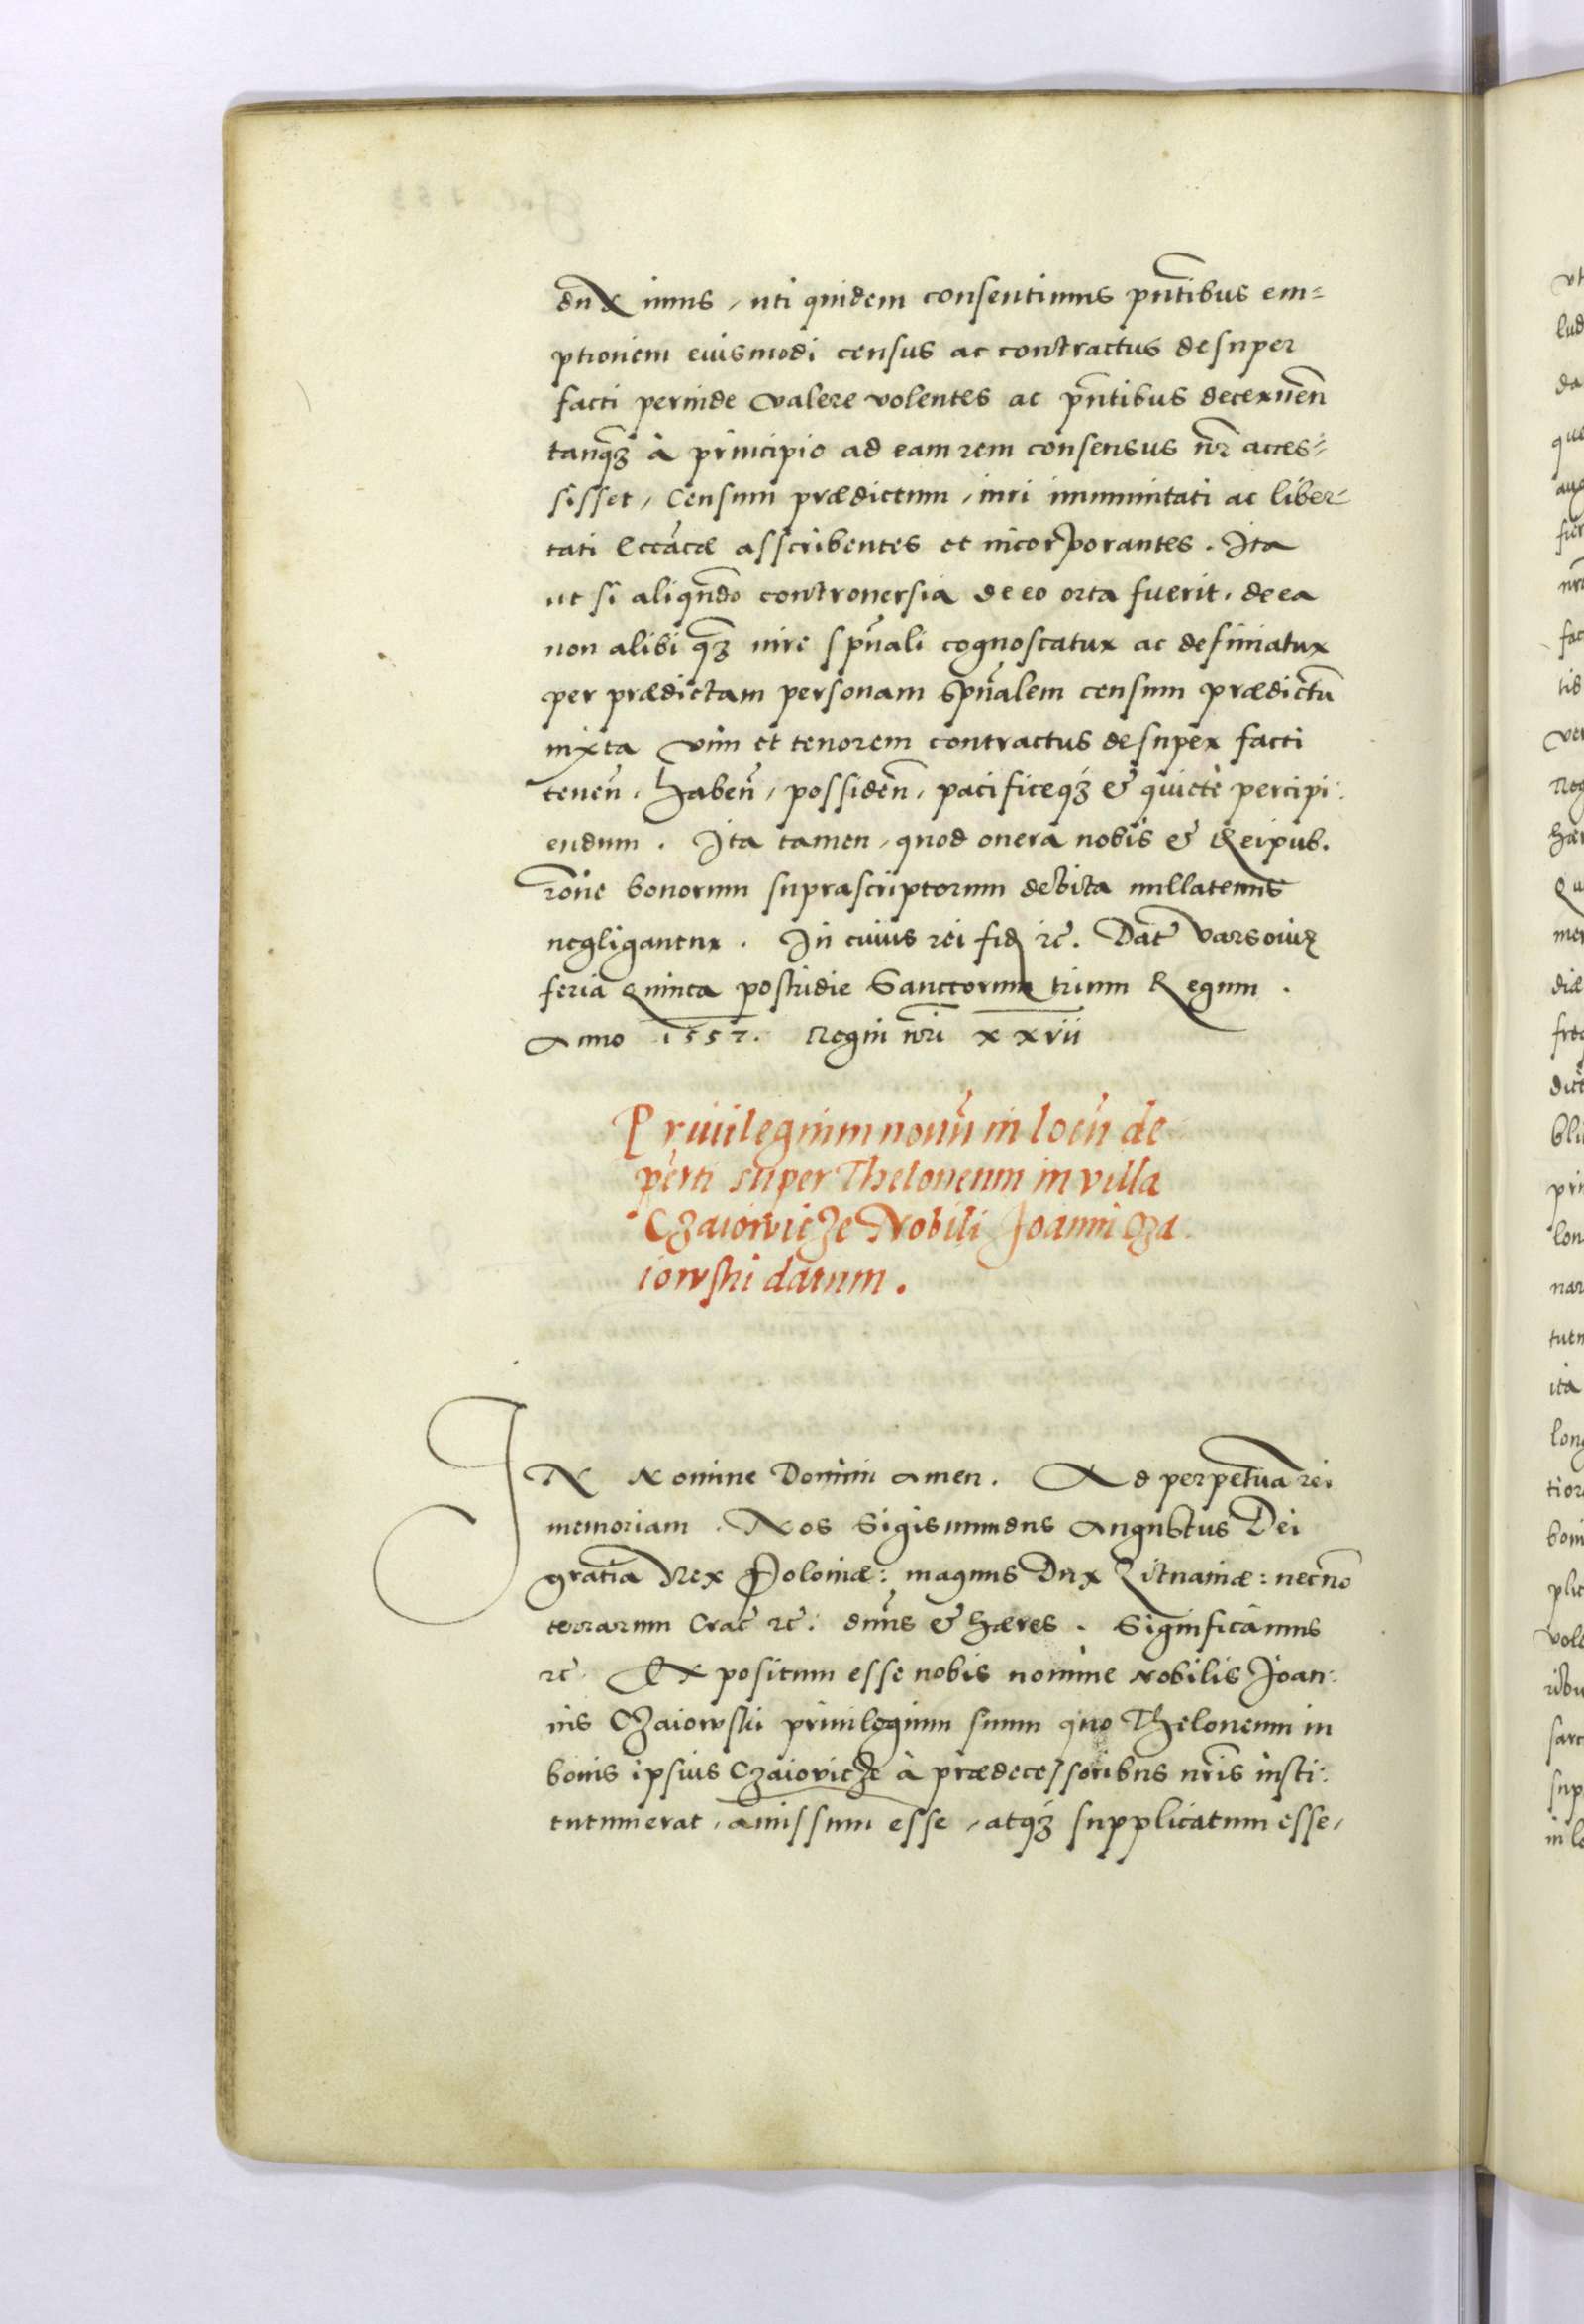 dux imus, uti quidem consentimus pñtibus em=
ptionem eiusmodi census ac contractus desuper
facti perinde valere volentes ac pñtibus decernen̄
tanq̃ʒ à principio ad eam rem consensus nr̃ acces=
sisset, Censum prædictum, iuri immunitati ac liber=
tati Eccãcæ asscribentes et incorporantes. Ita
ut si aliqñdo controuersia de eo orta fuerit, de ea
non alibi q̃ʒ iure spũali cognoscatur ac definiatur
per prædictam personam spũalem censum prædictũ
iuxta vim et tenorem contractus desuper facti
tenen̄, haben̄, possiden̄, pacificeqʒ & quietè percipi=
endum. Ita tamen, quod onera nobis & Reipub.
rõne bonorum suprascriptorum debita nullatenus
negligantur. In cuius rei fidẽ rc̃. Dat̃ Varsouię
feria Quinta postridie Sanctorum trium Regum.
Anno 1557. Regni nr̃i xxvii
Priuilegium nouũ in locũ de
perti super Theloneum in villa
Czaiowicze Nobili Joanni Cza=
iowski datum.
IN Nomine Domini amen. Ad perpetuã rei
memoriam. Nos Sigismundus Augustus Dei
gratia Rex Poloniæ: magnus Dux Lituaniæ: necnõ
terrarum Crac̃ rc̃: dñus & hæres. Significamus
rc̃. Expositum esse nobis nomine Nobilis Joan=
nis Czaiowski priuilegium suum quo Theloneum in
bonis ipsius Czaiovicze à prædecessoribus nr̃is insti=
tutum erat, amissum esse, atqʒ supplicatum esse,